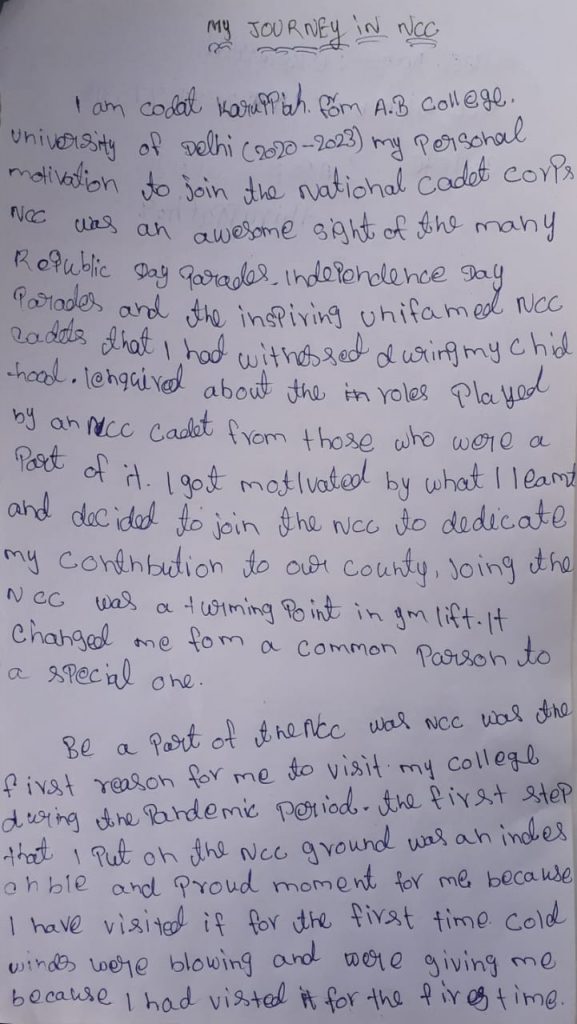 My JOURNEY iN NCC
I am codat Karuppiah. fom A.B College.
University of Delhi (2020-2023) my Personal
motivation to join the National Cadet Corps
NCC was an awesome sight of the many
Republic Day Parades. Independence Day
Parades and the inspiring unifamed NCC
cadets that I had witnessed during my Chid
-hood. I enquired about the in roles Played
by an NCC Cadet from those who were a
Part of it. I got motivated by what I learnt
and decided to join the NCC to dedicate
my contribution to our county, Joing the
NCC was a turming Point in ym lift. It
Changed me fom a common Parson to
a special one.
Be a Part of the NCC was NCC was the
first reason for me to visit my college
during the Pandemic Period. the first step
that I Put on the NCC ground was an indes
and Proud moment for me because
I have visited if for the first time. Cold
winds were blowing and were giving me
because I had visted it for the first time.